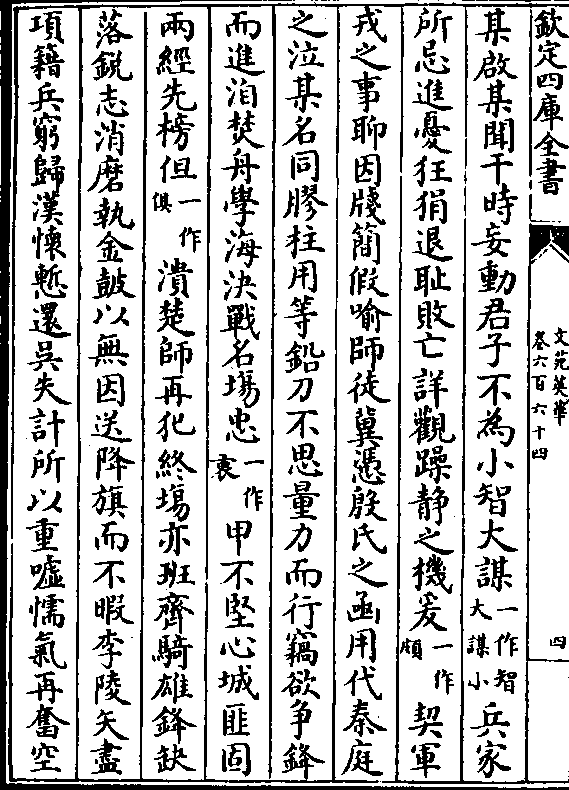 欽定四庫全書
文苑英華
卷六百六十四
四
某啟某聞干時妄動君子不為小智大謀一作智大謀小兵家
所忌進憂狂狷退耻敗亡詳觀躁静之機爰一作頗契軍
戎之事聊因牋簡假喻師徒冀憑殷氏之函用代秦庭
之泣某名同膠柱用等鉛刀不思量力而行竊欲争鋒
而進洎焚舟學海決戰名場忠一作衷甲不堅心城匪固
兩經先榜但一作俱潰楚師再犯終場亦班齊騎雄鋒缺
落鋭志消磨執金鼓以無因送降旗而不暇李陵矢盡
項籍兵窮歸漢懷慙還吳失計所以重嘘懦氣再奮空